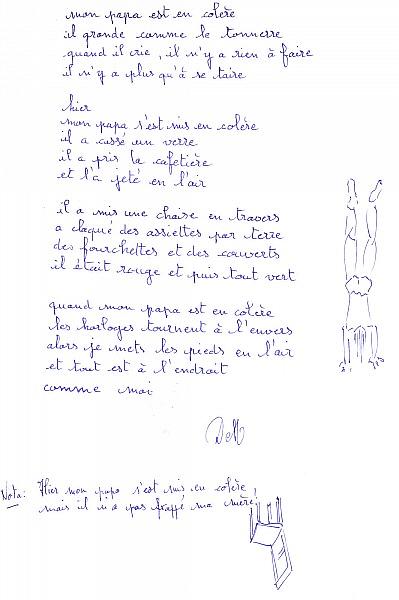 mon papa est en colère
il gronde comme le tonnerre
quand il crie, il n'y a rien à faire
il n'y a plus qu'à se taire
hier
mon papa s'est mis en colère
il a cassé un verre
il a pris la cafetière
et l'a jeté en l'air
il a mis une chaise en travers
a claqué des assiettes par terre
des fourchettes et des couverts
il était rouge et puis tout vert
quand mon papa est en colère
les horloges tournent à l'envers
alors je mets les pieds en l'air
et tout est à l'endroit
comme moi
Nota: Hier mon papa s'est mis en colère,
mais il n'a pas frappé ma mère!